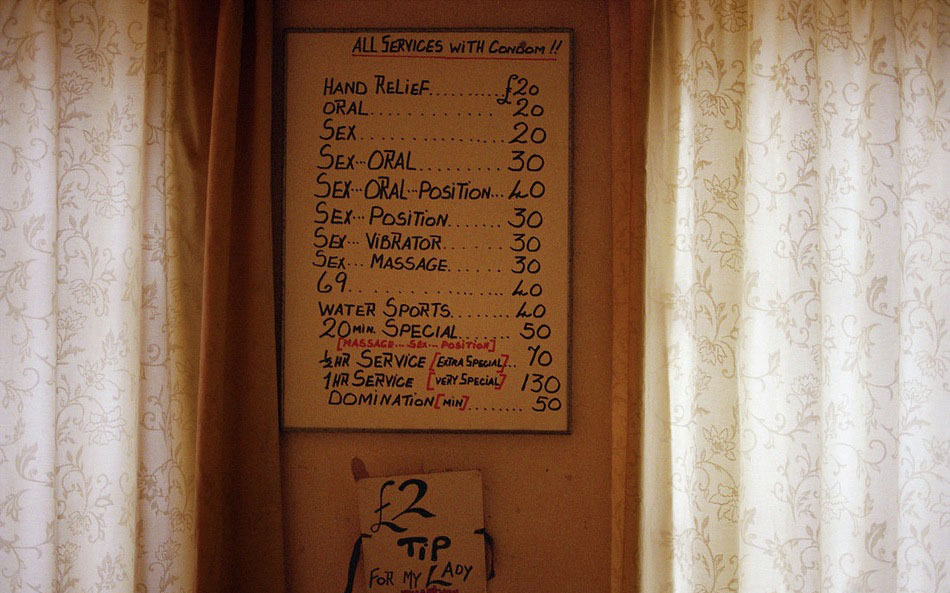 ALL SERVICES WITH CONDOM !!
HAND RELIEF........£20
ORAL................ 20
SEX................ 20
SEX...ORAL........ 30
SEX...ORAL...POSITION... 40
SEX... POSITION....... 30
SEX... VIBRATOR....... 30
SEX... MASSAGE....... 30
69................. 40
WATER SPORTS........ 40
20 MIN. SPECIAL....... 50
[MASSAGE... SEX... POSITION]
½HR SERVICE [EXTRA SPECIAL].. 70
1HR SERVICE [VERY SPECIAL] 130
DOMINATION [MIN]........ 50
£2
TIP
FOR MY LADY